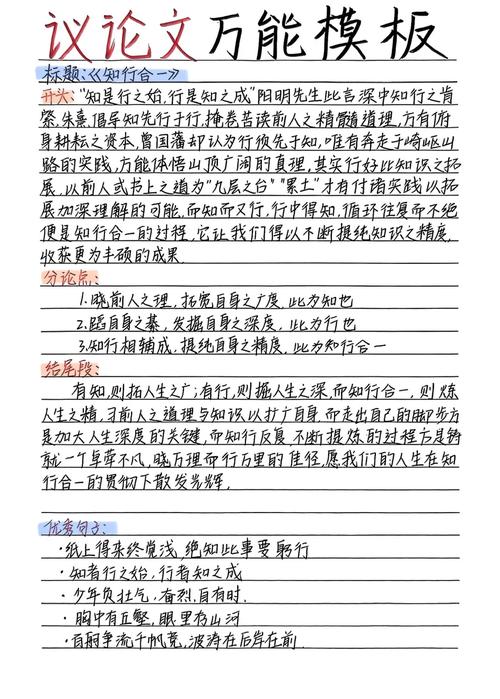 议论文万能模板
标题:《知行合一》
开头:"知是行之始,行是知之成"阳明先生此言深中知行之肯
綮,朱熹,倡导知先行于行,掩卷苦读前人之精髓道理,方有俯
身耕耘之资本,曾国藩却认为行须先于知,唯有奔走于崎岖山
路的实践,方能体悟山顶广阔的真理,其实行好比知识之拓
展,以前人或书上之道为"九层之台""累土"才有付诸实践以拓
展加深理解的可能,而知而又行,行中得知,循环往复而不绝
便是知行合一的过程,它让我们得以不断提纯知识之精度,
收获更为丰硕的成果.
分论点:
1.晓前人之理,拓宽自身之广度,此为知也
2.蹈自身之綦,发掘自身之深度,此为行也
3.知行相辅成,提纯自身之精度,此为知行合一
结尾段:
有知,则拓人生之广;有行,则掘人生之深,而知行合一,则炼
人生之精,习前人之道理与知识以扩广自身,而走出自己的脚步方
是加大人生深度的关键,而知行反复,不断提炼的过程方是铸
就一个卓荦不凡,晓万理而行万里的佳径,愿我们的人生在知
行合一的贯彻下散发光辉.
优秀句子:
·纸上得来终觉浅,绝知此事要躬行
·知者行之始,行者知之成
·少年负壮气,奋烈自有时.
·胸中有丘壑,眼里存山河
·百舸争流千帆竞,波涛在后岸在前.